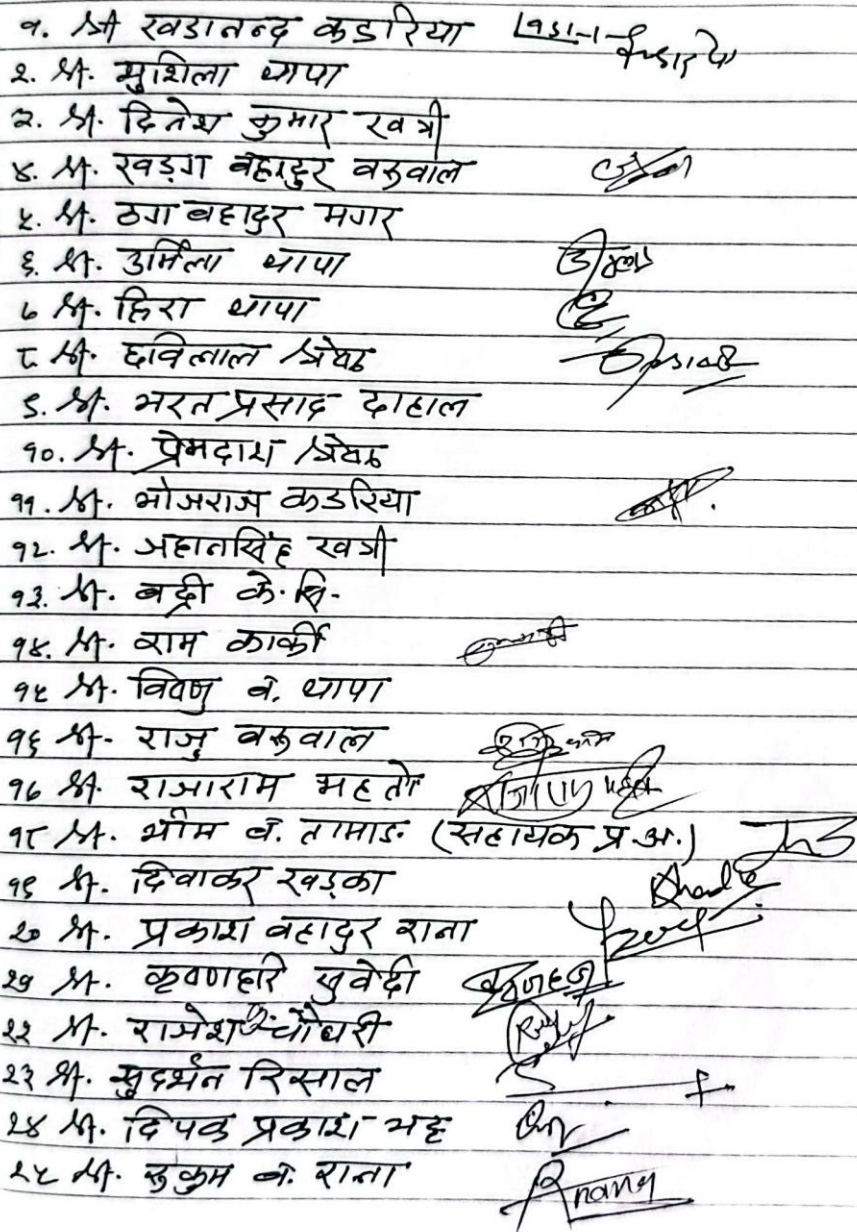 १. श्री खडानन्द कडारिया
२. श्री. सुशिला थापा
३. श्री. दिनेश कुमार खत्री
४. श्री. खड्ग बहादुर वरुवाल
५. श्री. ठग बहादुर मगर
६. श्री. उर्मिला थापा
७ श्री. हिरा थापा
८ श्री. छविलाल श्रेष्ठ
९. श्री. भरत प्रसाद दाहाल
१०. श्री. प्रेमदाश श्रेष्ठ
११. श्री. भोजराज कडरिया
१२. श्री. जहानसिंह खत्री
१३. श्री. बद्री के.सि.
१४. श्री. राम कार्की
१५ श्री. विष्णु ब. थापा
१६ श्री. राजु वरुवाल
१७ श्री. राजाराम महतो
१८ श्री. भीम ब. तामाङ (सहायक प्र.अ.)
१९ श्री. दिवाकर खड्का
२० श्री. प्रकाश बहादुर राना
२१ श्री. कृष्णहरि सुवेदी
२२ श्री. राजेश चौधरी
२३ श्री. सुदर्शन रिसाल
२४ श्री. दिपक प्रकाश भट्ट
२५ श्री. हुकुम ब. राना